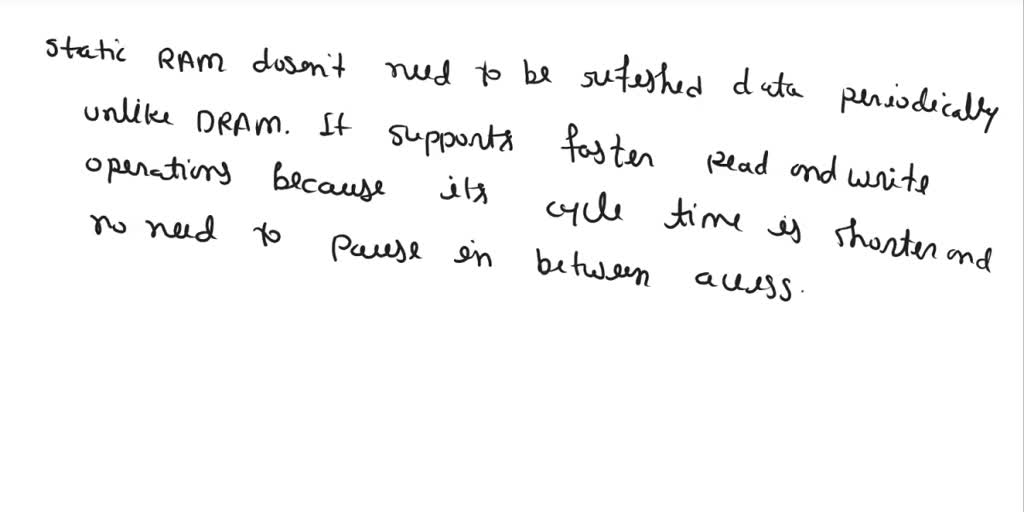 static RAM dosen't need to be refeshed data periodically
unlike DRAM. It supports faster read and write
operations because its cycle time is shorter and
no need to pause in between access.